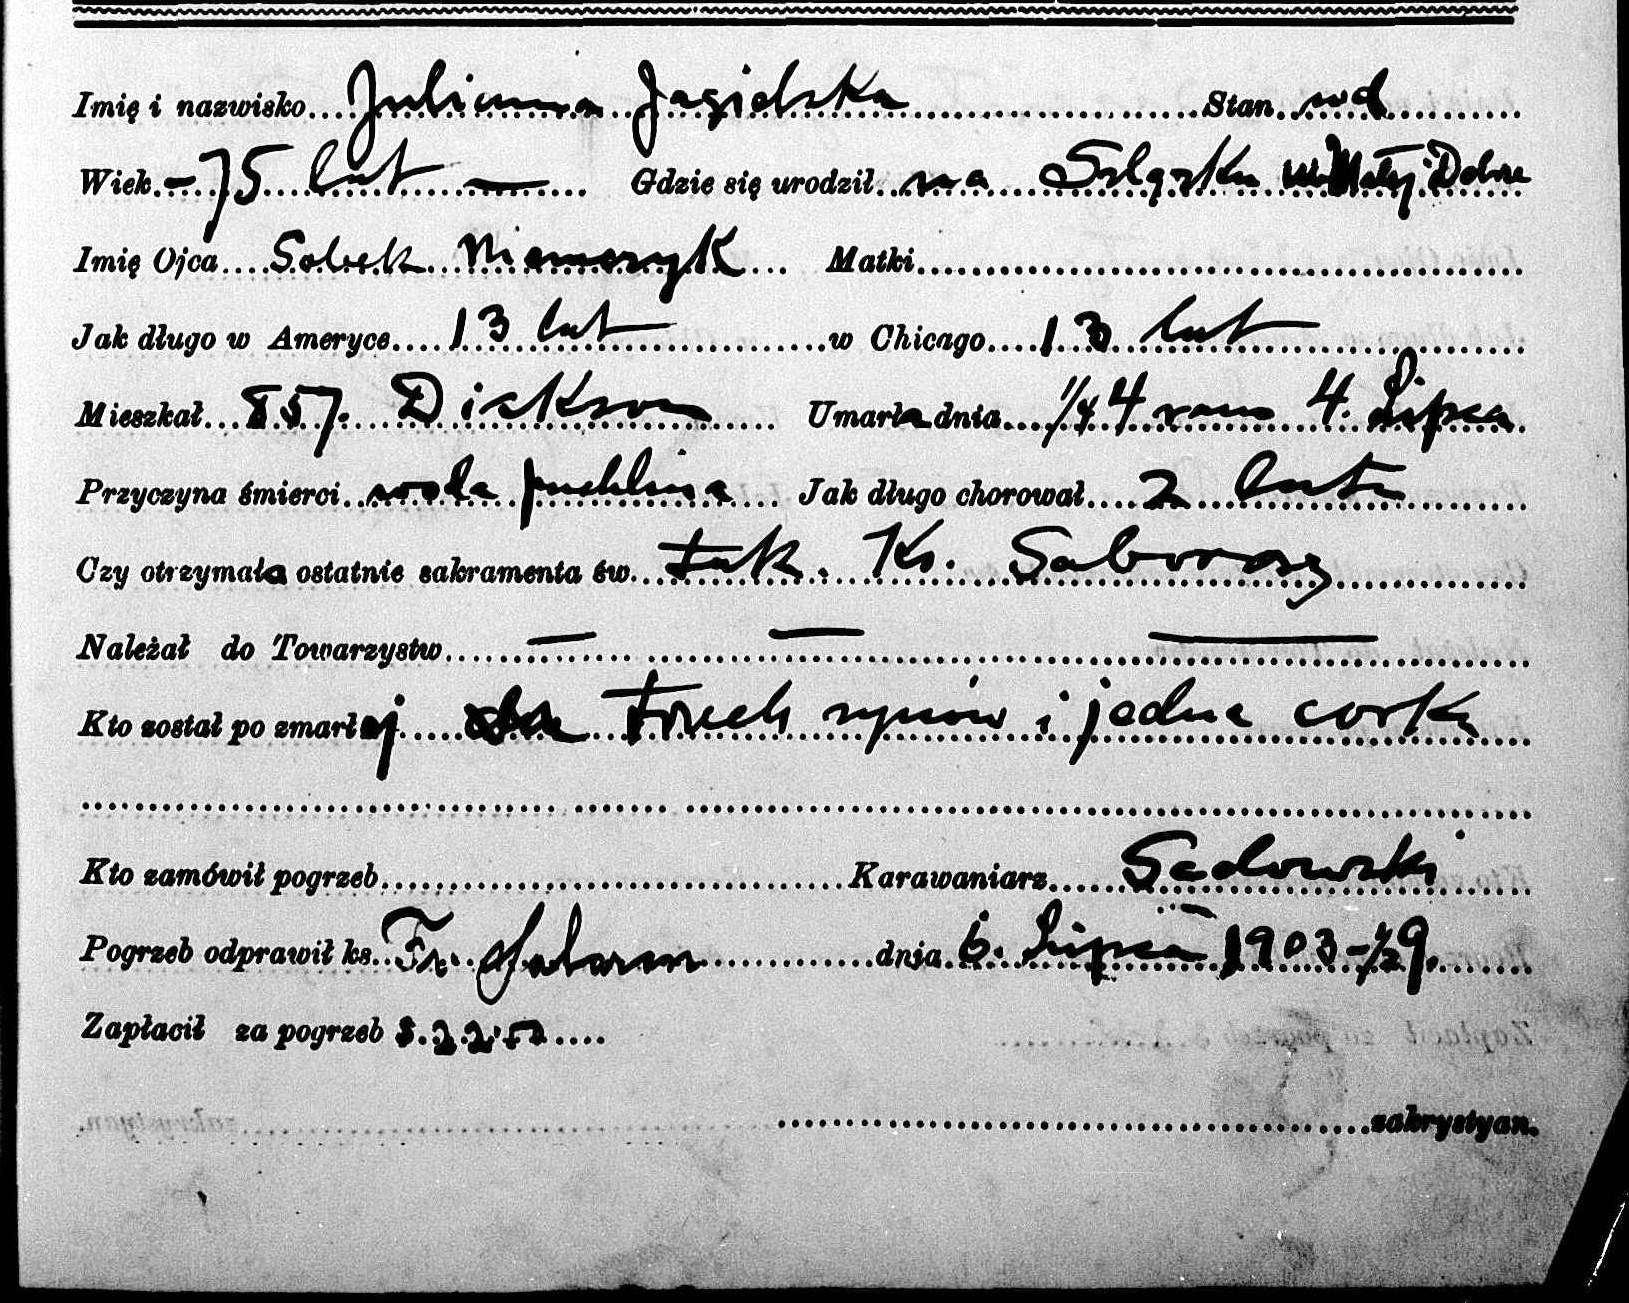 Imię i nazwisko.... Julianna Jagielska Stan. wd
Wiek. - 75 lat — Gdzie się urodził.. na Szląsku w Małej Dobre
Imię Ojca.... Sobek Niemczyk Matki
Jak długo w Ameryce.... 13 lat w Chicago.... 13 lat
Mieszkał... 857. Dickson Umarła dnia... 1/4 4 rano 4. Lipca
Przyczyna śmierci.. woda puchlina Jak długo chorował.... 2 lata
Czy otrzymała ostatnie sakramenta św... tak. Ks.
Należał do Towarzystw..... — — —
Kto został po zmarłej..... trzech synów i jedne corke
Kto zamówił pogrzeb Karawaniarz..... Sadowski
Pogrzeb odprawił ks.. Fr. dnia. 6. Lipca 1903 - 1/2 9.
Zapłacił za pogrzeb
zakrystyan.